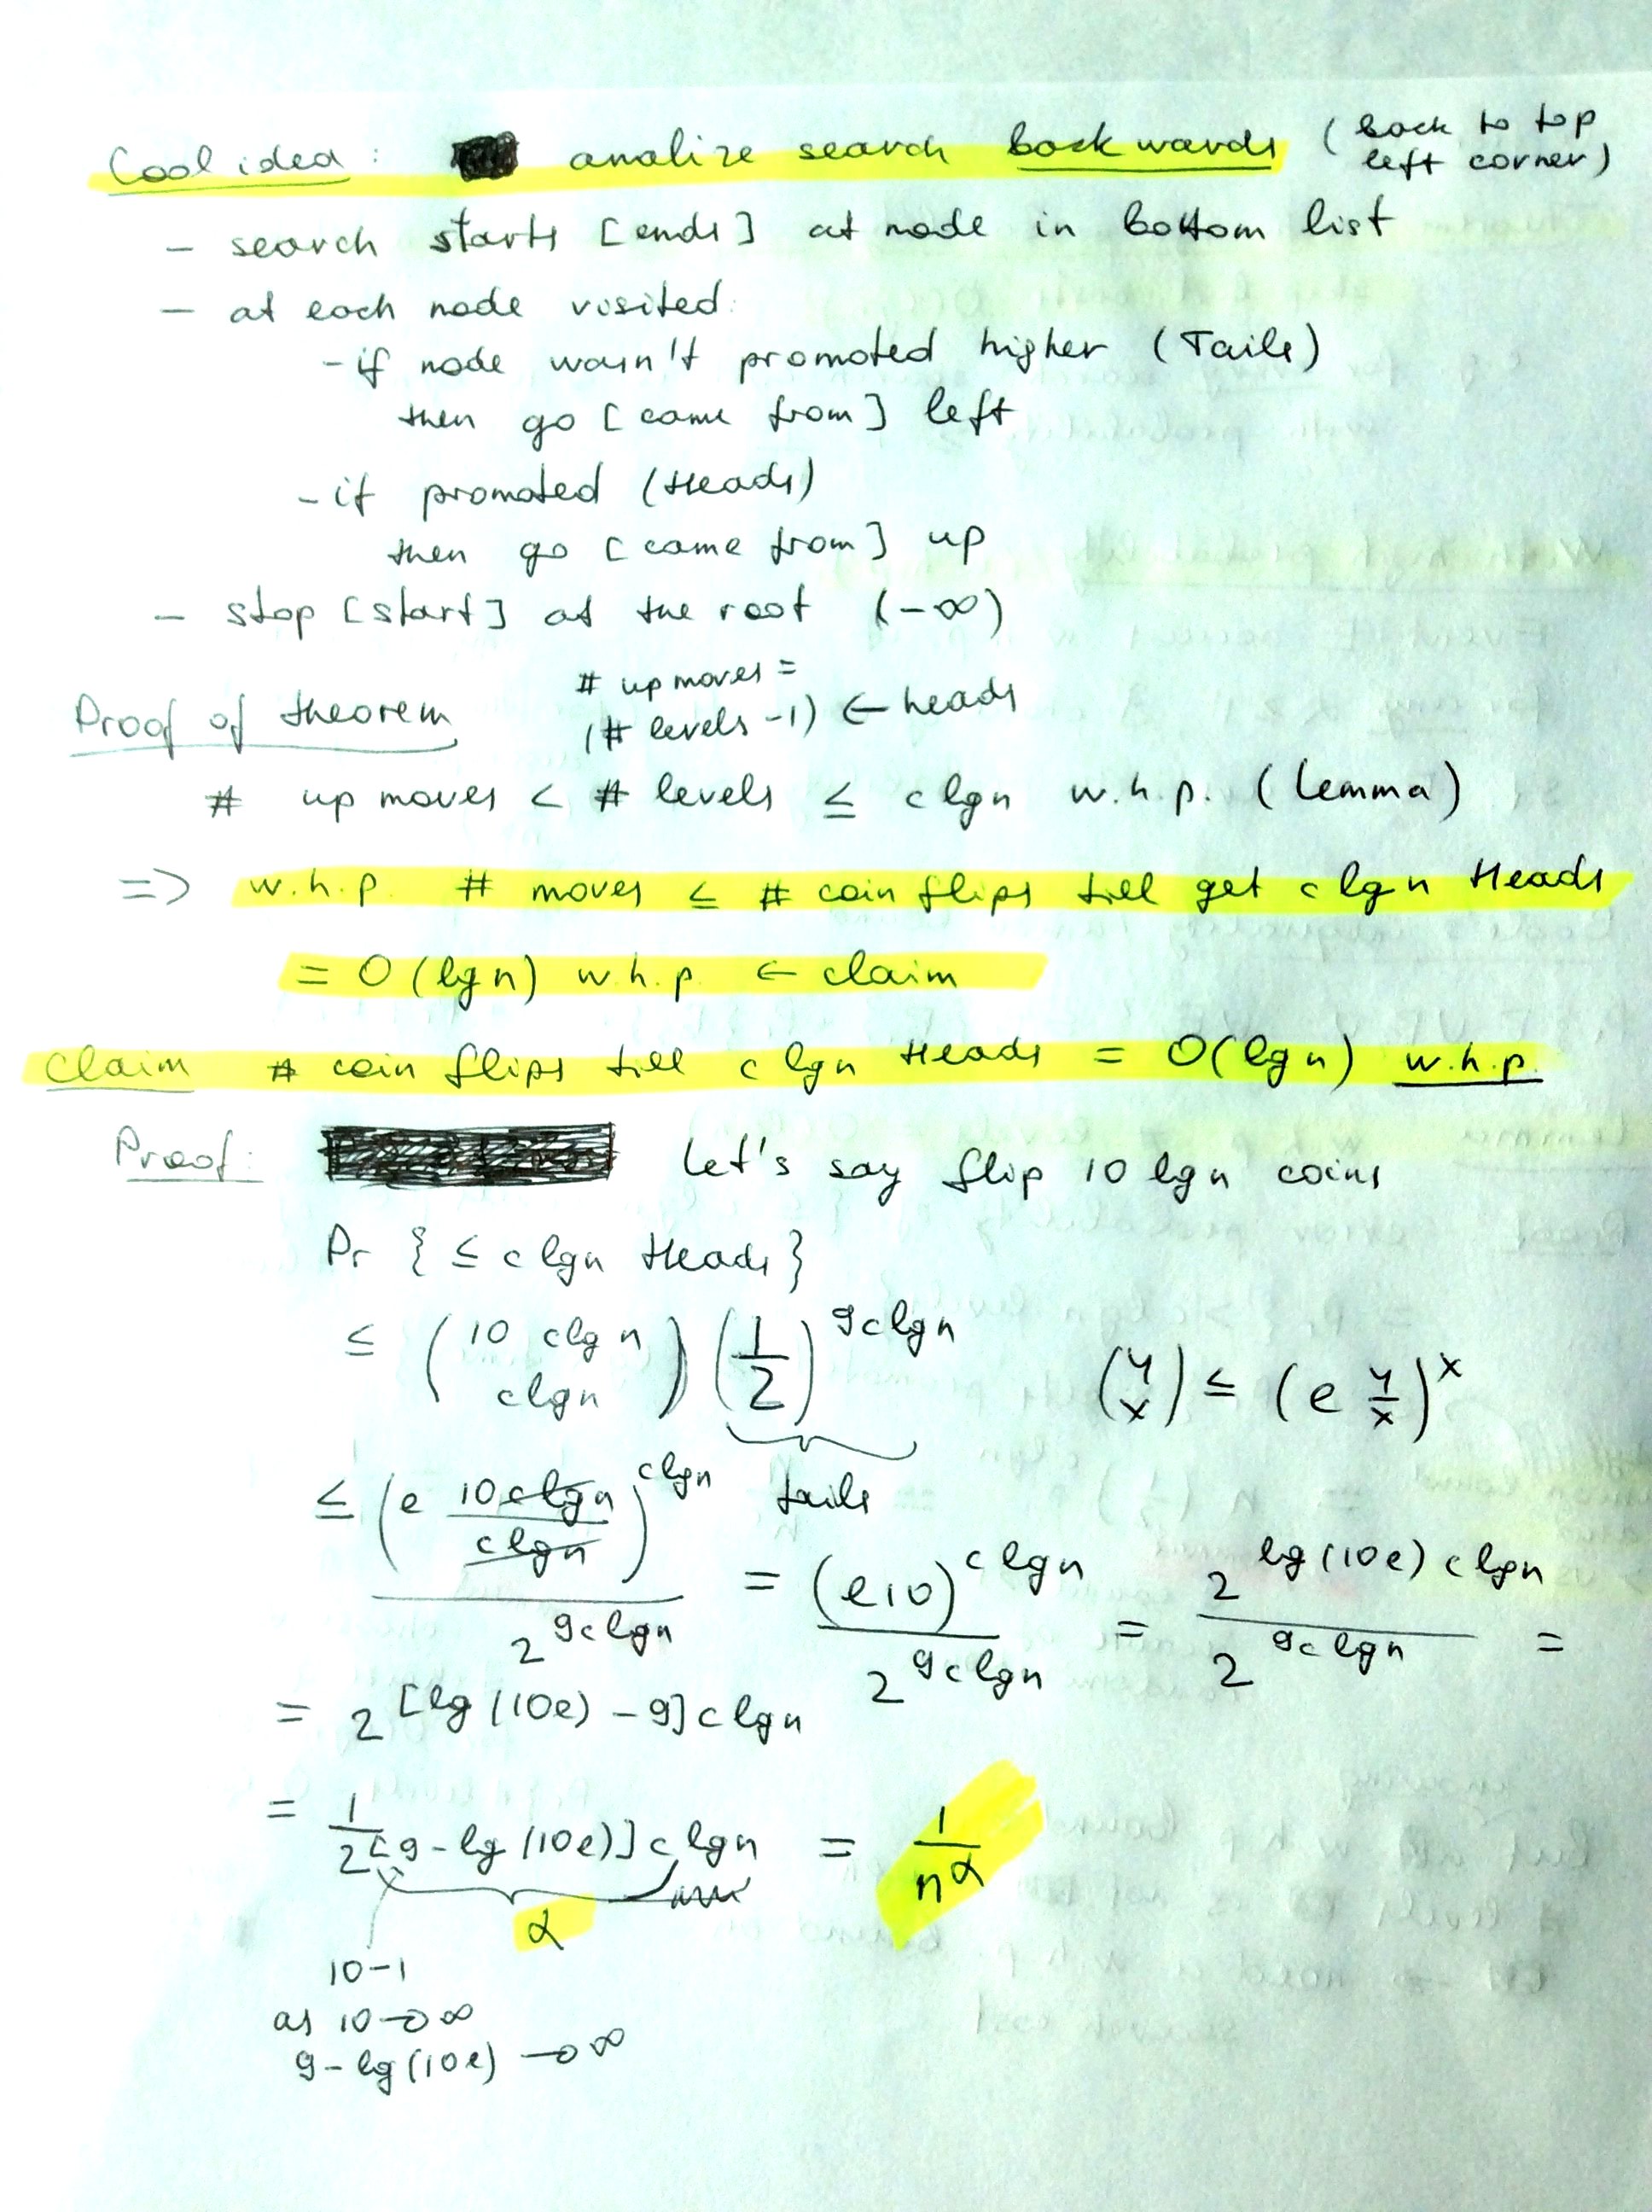 Cool idea: analize search backwards (back to top left corner)
- search starts [ends] at node in bottom list
- at each node visited:
- if node wasn't promoted higher (Tails)
then go [came from] left
- if promoted (Heads)
then go [came from] up
- stop [start] at the root (-∞)
Proof of theorem
# up moves =
(# levels -1) ← heads
# up moves < # levels ≤ c lgn w.h.p. (Lemma)
=> w.h.p. # moves ≤ # coin flips till get c lgn Heads
= O(lgn) w.h.p. ← claim
Claim # coin flips till c lgn Heads = O(lgn) w.h.p.
Proof: Let's say flip 10 lgn coins
Pr { ≤ c lgn Heads }
≤ (10 clgn choose clgn) (1/2)^9clgn
(y choose x) ≤ (e y/x)^x
tails
≤ (e 10clgn/clgn)^clgn / 2^9clgn = (e10)^clgn / 2^9clgn = 2^lg(10e)clgn / 2^9clgn =
= 2^[lg(10e) - 9]c lgn
= 1/2^[9-lg(10e)]c lgn = 1/n^α
α
10-1
as 10→∞
9-lg(10e) →∞